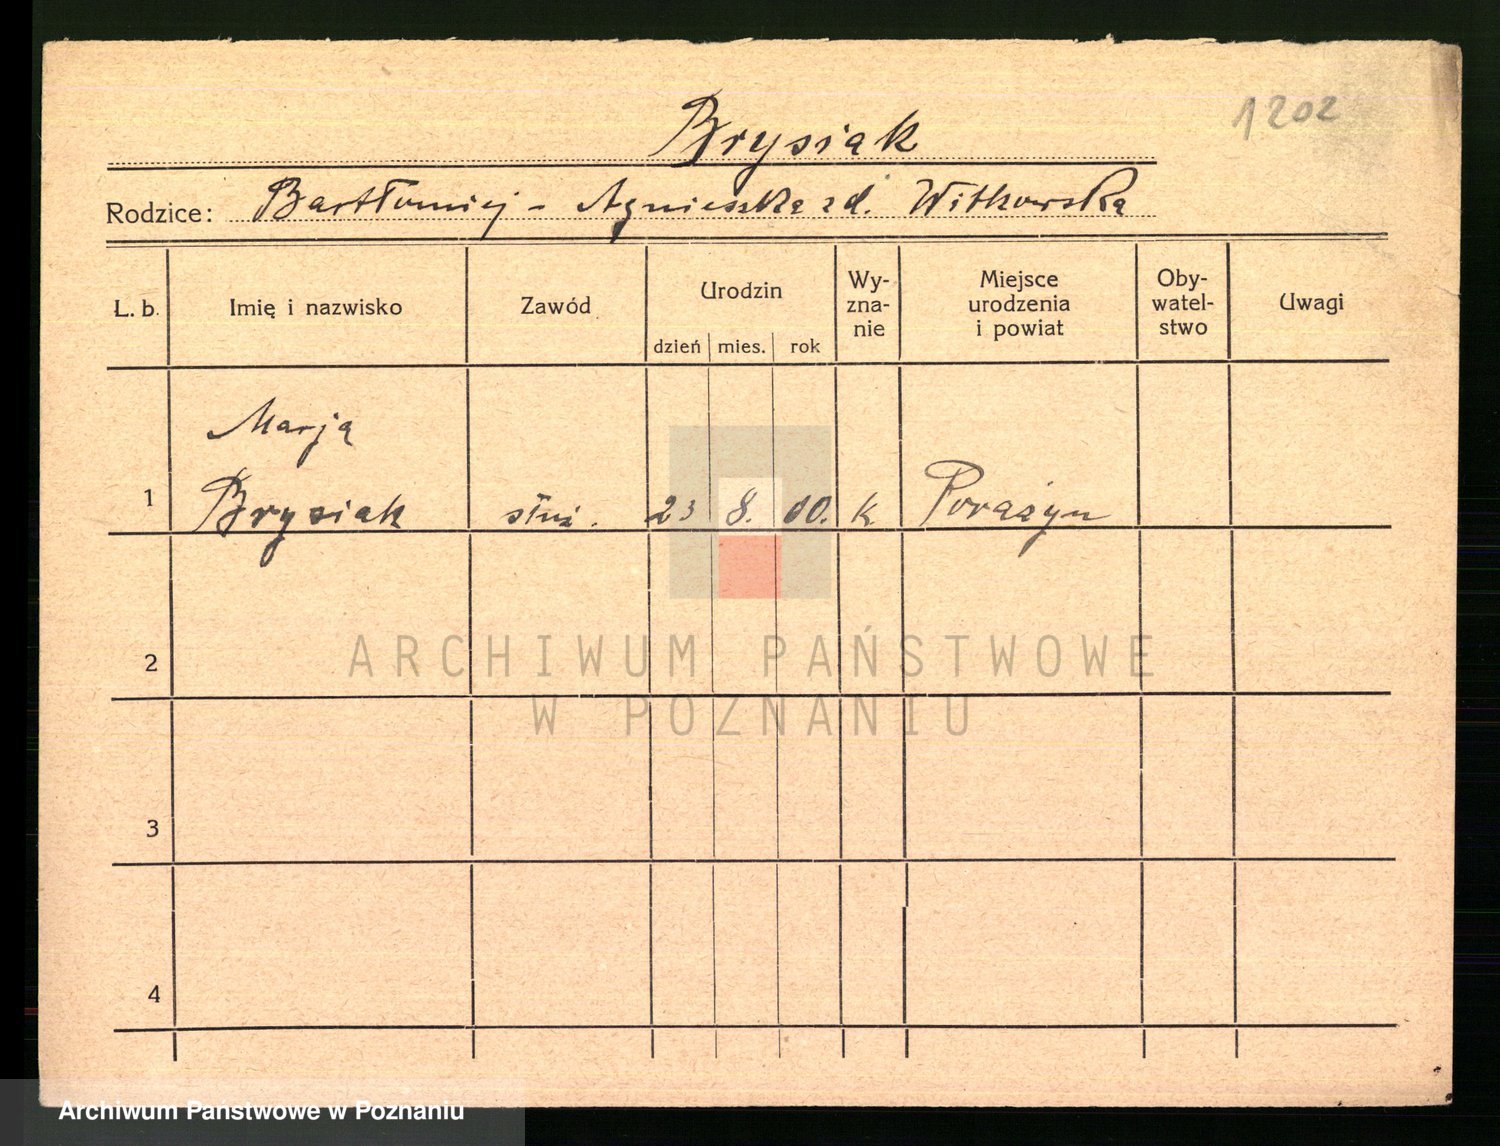 1202
Brysiak
Rodzice: Bartłomiej - Agnieszka zd. Witkowska
L. b. Imię i nazwisko Zawód Urodzin Wy- Miejsce Oby- Uwagi
zna- urodzenia watel-
nie i powiat stwo
dzień mies. rok
Marja
1 Brysiak służ. 23 8. 00. k Porażyn
2
3
4
ARCHIWUM PAŃSTWOWE
W POZNANIU
Archiwum Państwowe w Poznaniu